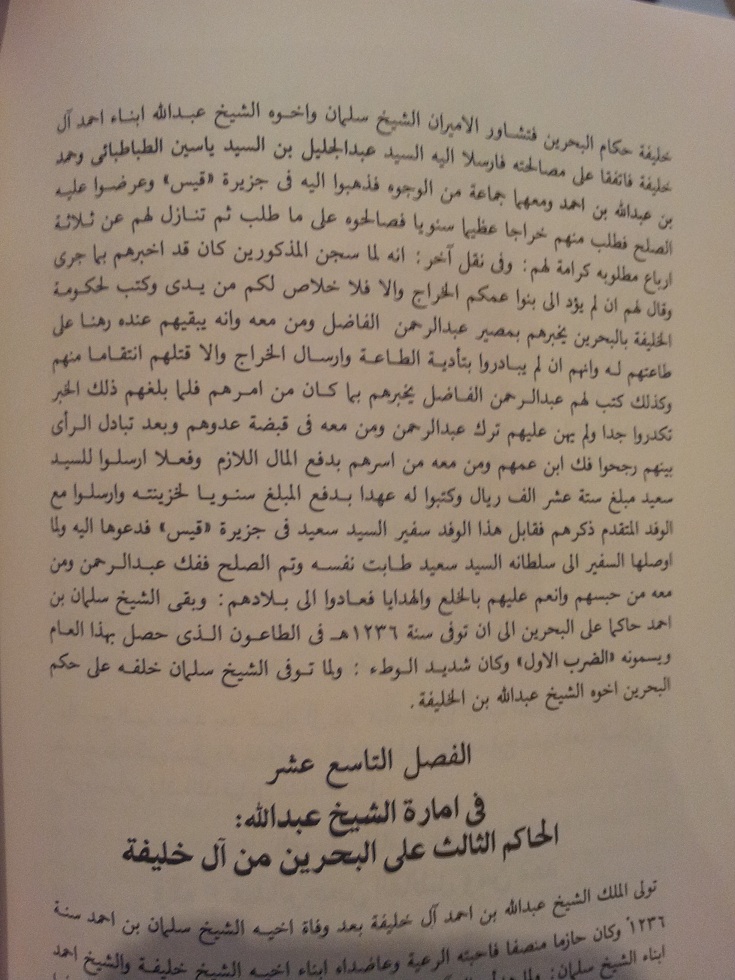 خليفة حكام البحرين فتشاور الاميران الشيخ سلمان واخوه الشيخ عبدالله ابناء احمد آل
خليفة فاتفقا على مصالحته فارسلا اليه السيد عبدالجليل بن السيد ياسين الطباطبائى وحمد
بن عبدالله بن احمد ومعهما جماعة من الوجوه فذهبوا اليه فى جزيرة «قيس» وعرضوا عليه
الصلح فطلب منهم خراجا عظيما سنويا فصالحوه على ما طلب ثم تنازل لهم عن ثلاثة
ارباع مطلوبه كرامة لهم: وفى نقل آخر: انه لما سجن المذكورين كان قد اخبرهم بما جرى
وقال لهم ان لم يؤد الى بنوا عمكم الخراج والا فلا خلاص لكم من يدى وكتب لحكومة
الخليفة بالبحرين يخبرهم بمصير عبدالرحمن الفاضل ومن معه وانه يبقيهم عنده رهنا على
طاعتهم له وانهم ان لم يبادروا بتأدية الطاعة وارسال الخراج والا قتلهم انتقاما منهم
وكذلك كتب لهم عبدالرحمن الفاضل يخبرهم بما كان من امرهم فلما بلغهم ذلك الخبر
تكدروا جدا ولم يهن عليهم ترك عبدالرحمن ومن معه فى قبضة عدوهم وبعد تبادل الرأى
بينهم رجحوا فك ابن عمهم ومن معه من اسرهم بدفع المال اللازم وفعلا ارسلوا للسيد
سعيد مبلغ ستة عشر الف ريال وكتبوا له عهدا بدفع المبلغ سنويا لخزينته وارسلوا مع
الوفد المتقدم ذكرهم فقابل هذا الوفد سفير السيد سعيد فى جزيرة «قيس» فدعوها اليه ولما
اوصلها السفير الى سلطانه السيد سعيد طابت نفسه وتم الصلح ففك عبدالرحمن ومن
معه من حبسهم وانعم عليهم بالخلع والهدايا فعادوا الى بلادهم: وبقى الشيخ سلمان بن
احمد حاكما على البحرين الى ان توفى سنة ١٢٣٦هـ فى الطاعون الذى حصل بهذا العام
ويسمونه «الضرب الاول» وكان شديد الوطء : ولما توفى الشيخ سلمان خلفه على حكم
البحرين اخوه الشيخ عبدالله بن الخليفة.
الفصل التاسع عشر
فى امارة الشيخ عبدالله:
الحاكم الثالث على البحرين من آل خليفة
تولى الملك الشيخ عبدالله بن احمد آل خليفة بعد وفاة اخيه الشيخ سلمان بن احمد سنة
١٢٣٦ وكان حازما منصفا فاحبته الرعية وعاضداه ابناء اخيه الشيخ خليفة والشيخ احمد
ابناء الشيخ سلمان: